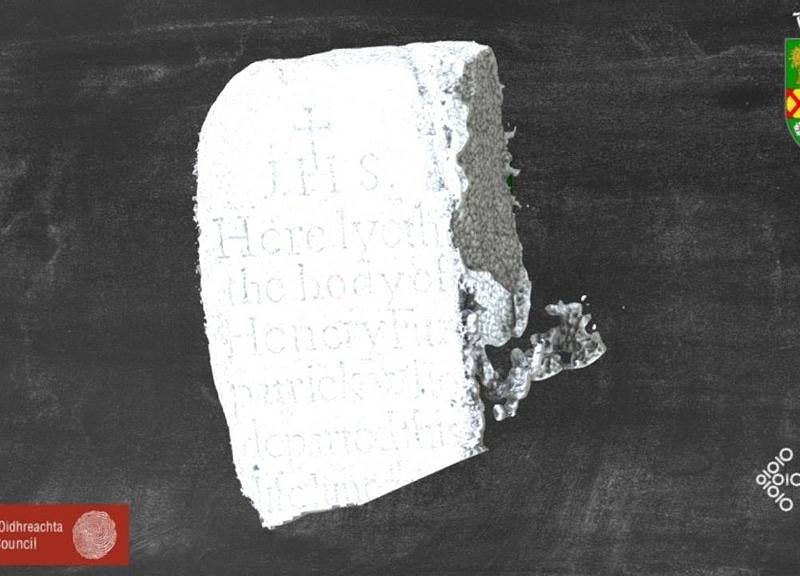 IHS.
Here lyeth
the body of
Henery Fitz
patrick who
departed this
life June the
Oidhreachta
Council